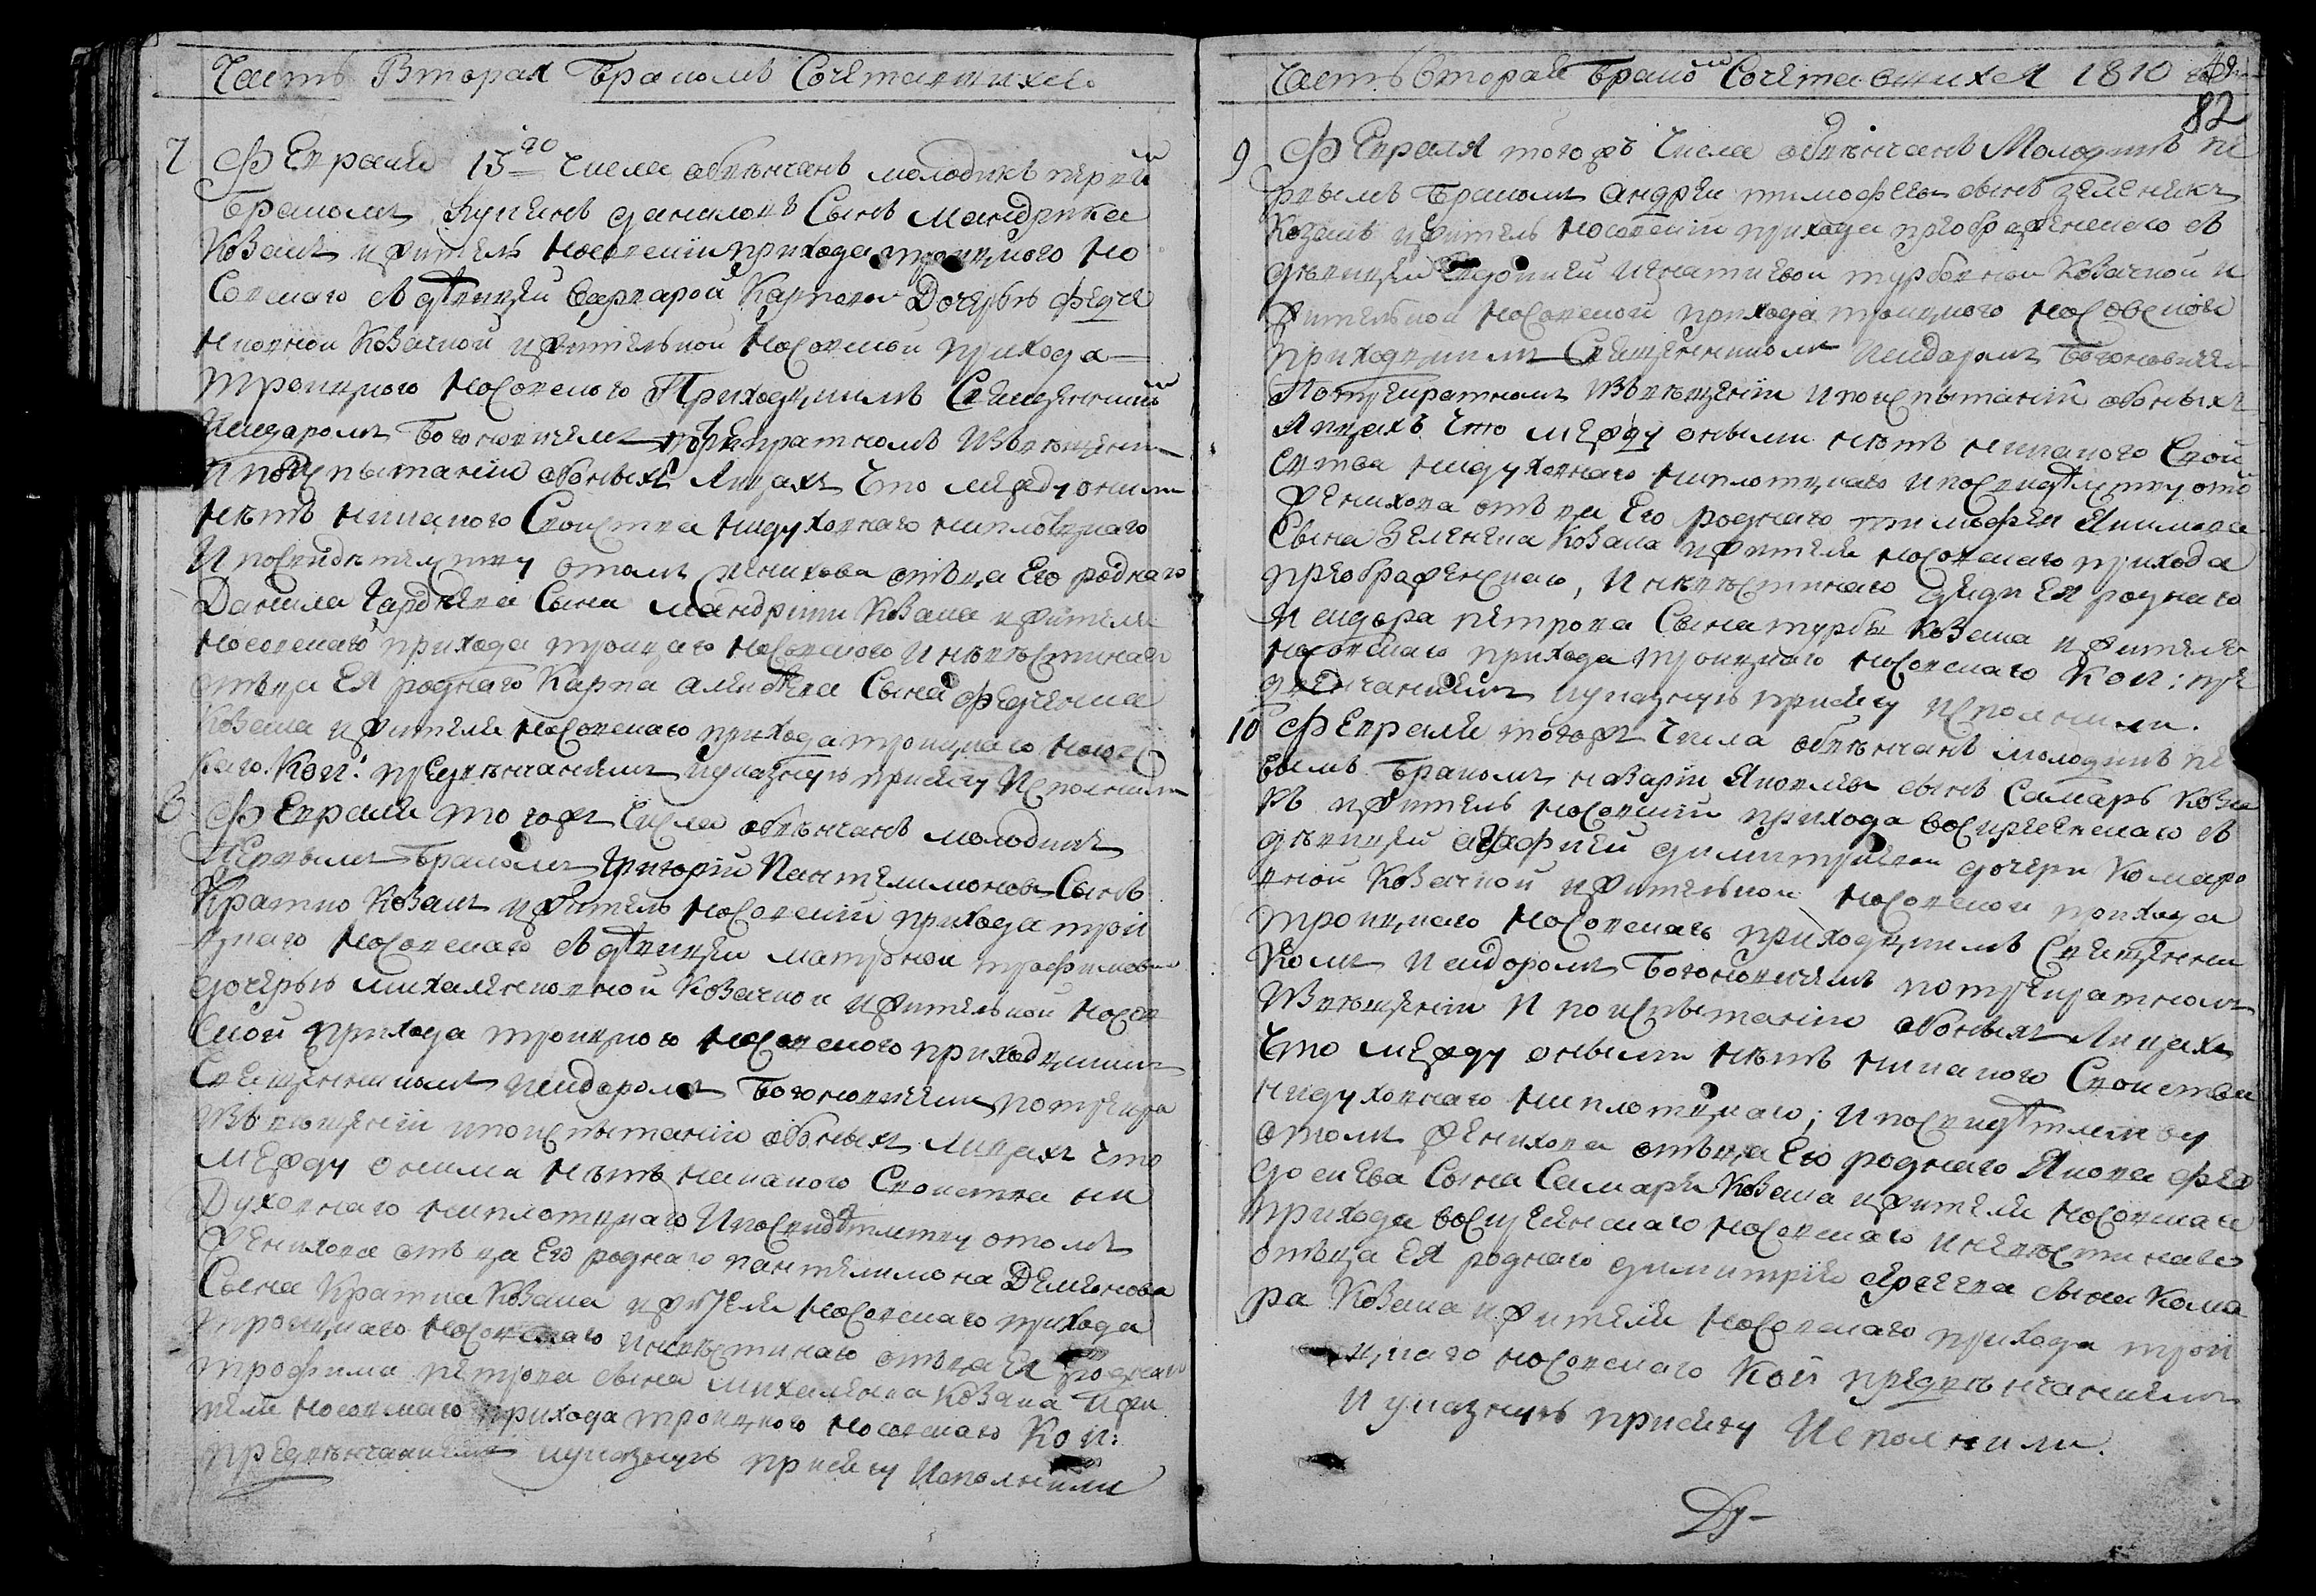 Часть Вторая Бракомъ Сочетавшихся
7 Февраля 13го числа обвѣнчанъ молодикъ первим
бракомъ Купріянъ даниловъ Сынъ мандрика
Козакъ и житель носовскій прихода троицкого но
совского зъ дѣвицей варварой Карповой Дочерью федче
нковной Козачкой и жителькой Носовской прихода
троицкого носовского Приходцкимъ Священникомъ
Исидоромъ Богоновичемъ по трекратномъ Извѣщеніи
И по испытаніи обоныхъ Лицахъ Что между оними
нѣтъ никакого Свойства ни духовнаго ни плотцкаго
И по свидѣтелству отомъ женихова отъца Его роднаго
Данила Сына мандрики Козака и жителя
носовскаго прихода троицкаго носовского и невѣстинаго
отъца Ея роднаго Карпа Сына федченка
Козака и жителя носовскаго прихода троицкаго носов
каго. Кои: предвѣнчаніемъ и указную присягу Исполнили
8 Февраля тогожъ Числа обвѣнчанъ молодикъ
Первымъ бракомъ Григорій Пантелимоновъ Сынъ
Кратко Козакъ и житель Носовскій прихода трои
цкаго Носовскаго зъ дѣвицей матроной трофимовой
дочерью михаленковной Козачкой и жителькой носов
ской прихода троицкого Носовского приходцкимъ
Священникомъ исидоромъ Богоновичемъ по трекра
Извѣщеніи и по испытаніи обоныхъ лицахъ что
между онима нѣтъ никакого Свойства ни
духовнаго ни плотцкаго И по свидѣтелству отомъ
женихова отъца Его роднаго пантелимона Деменова
Сына Кратка Козака и жителя носовскаго прихода
троицкаго носовскаго и невѣстинаго отъца Ея роднаго
трофима петрова сына михаленка Козака и жи
теля носовскаго прихода троицкого носовскаго Кои:
предвѣнчаніемъ и указную присягу Исполнили
Часть Вторая бракомъ Сочетавшихся 1810
82
9 Февраля тогожъ Числа обвѣнчанъ Молодикъ пе
рвымъ бракомъ андрей тимофеевъ сынъ зеленикъ
Козакъ и житель носовскій прихода преображенского зъ
дѣвицей Евдокией игнатиевой турбовной Козачкой и
жителькой носовской прихода троицкого носовской
приходцкимъ Священникомъ Исидоромъ Богоновичемъ
По трекратномъ Извѣщеніи и по испытаніи обоныхъ
Лицахъ Что между оными нѣтъ никакого Свой
ства ни духовнаго ни плотцкаго и по свидѣтелству отом
женихова отъца Его роднаго тимофея Якимова
Сына Зеленика Козака и жителя носовскаго прихода
преображенскаго, И невѣстинаго дяди Ея роднаго
Исидора петрова Сына турбы Козака и жителя
носовскаго прихода троицкаго носовскаго Кои: пре
двѣнчаніемъ и указную присягу исполнили.
10 Февраля тогожъ Числа обвѣнчанъ молодикъ пе
вымъ бракомъ назарій Яковлевъ сынъ Самарь Коза
къ и житель носовскій прихода воскресенскаго зъ
дѣвицей агафией димитриевой дочери Комаро
вной Козачкой и жителькой носовской прихода
троицкаго носовскаго приходцкимъ Священни
комъ Исидоромъ Богоновичемъ по трекратномъ
Извѣщеніи И по испытанію обоныхъ Лицахъ
Что между оными нѣтъ никакого Свойства
ни духовнаго ни плотцкаго; и по свидѣтелству
отомъ женихова отъца Его роднаго Якова фео
досиева Сына Самаря Козака и жителя носовскаго
прихода воскресенскаго носовскаго и невѣстинаго
отъца Ея роднаго димитрия сына Кома
ра Козака и жителя носовскаго прихода трои
цкаго носовскаго Кои предвѣнчаніемъ
И указную присягу Исполнили.